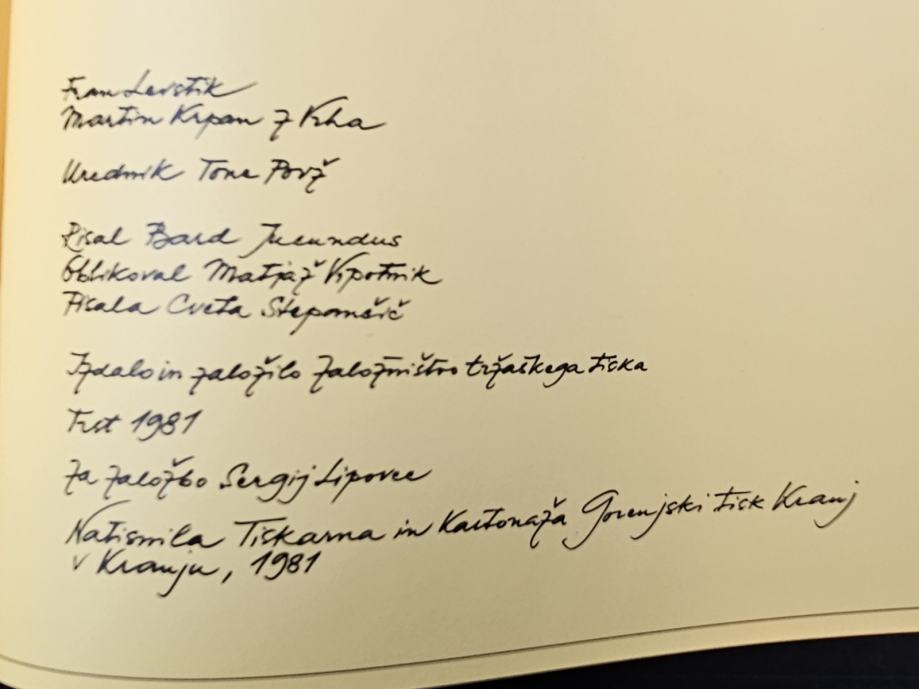 Fran Levstik
Martin Krpan z Vrha
Urednik Tone Povž
Risal Bard Jucundus
Oblikoval Matjaž Vipotnik
Pisala Cveta Stepančič
Izdalo in založilo Založništvo tržaškega tiska
Trst 1981
Za založbo Sergij Lipovec
Natisnila Tiskarna in Kartonaža Gorenjski tisk Kranj
v Kranju, 1981